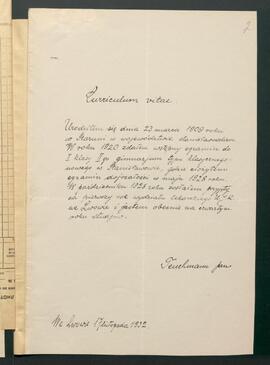 2
Curriculum vitae
Urodziłem się dnia 23 marca 1908 roku
w Staruni w województwie stanisławowskim.
W roku 1920 zdałem wstępny egzamin do
I klasy II go gimnazjum typu klasycznego
nowego w Stanisławowie, gdzie złożyłem
egzamin dojrzałości w maju 1928 roku.
W październiku 1928 roku zostałem przyjęty
na pierwszy rok wydziału lekarskiego U.J.K.
we Lwowie i jestem obecnie na czwartym
roku studjów.
Jan
We Lwowie listopada 1932